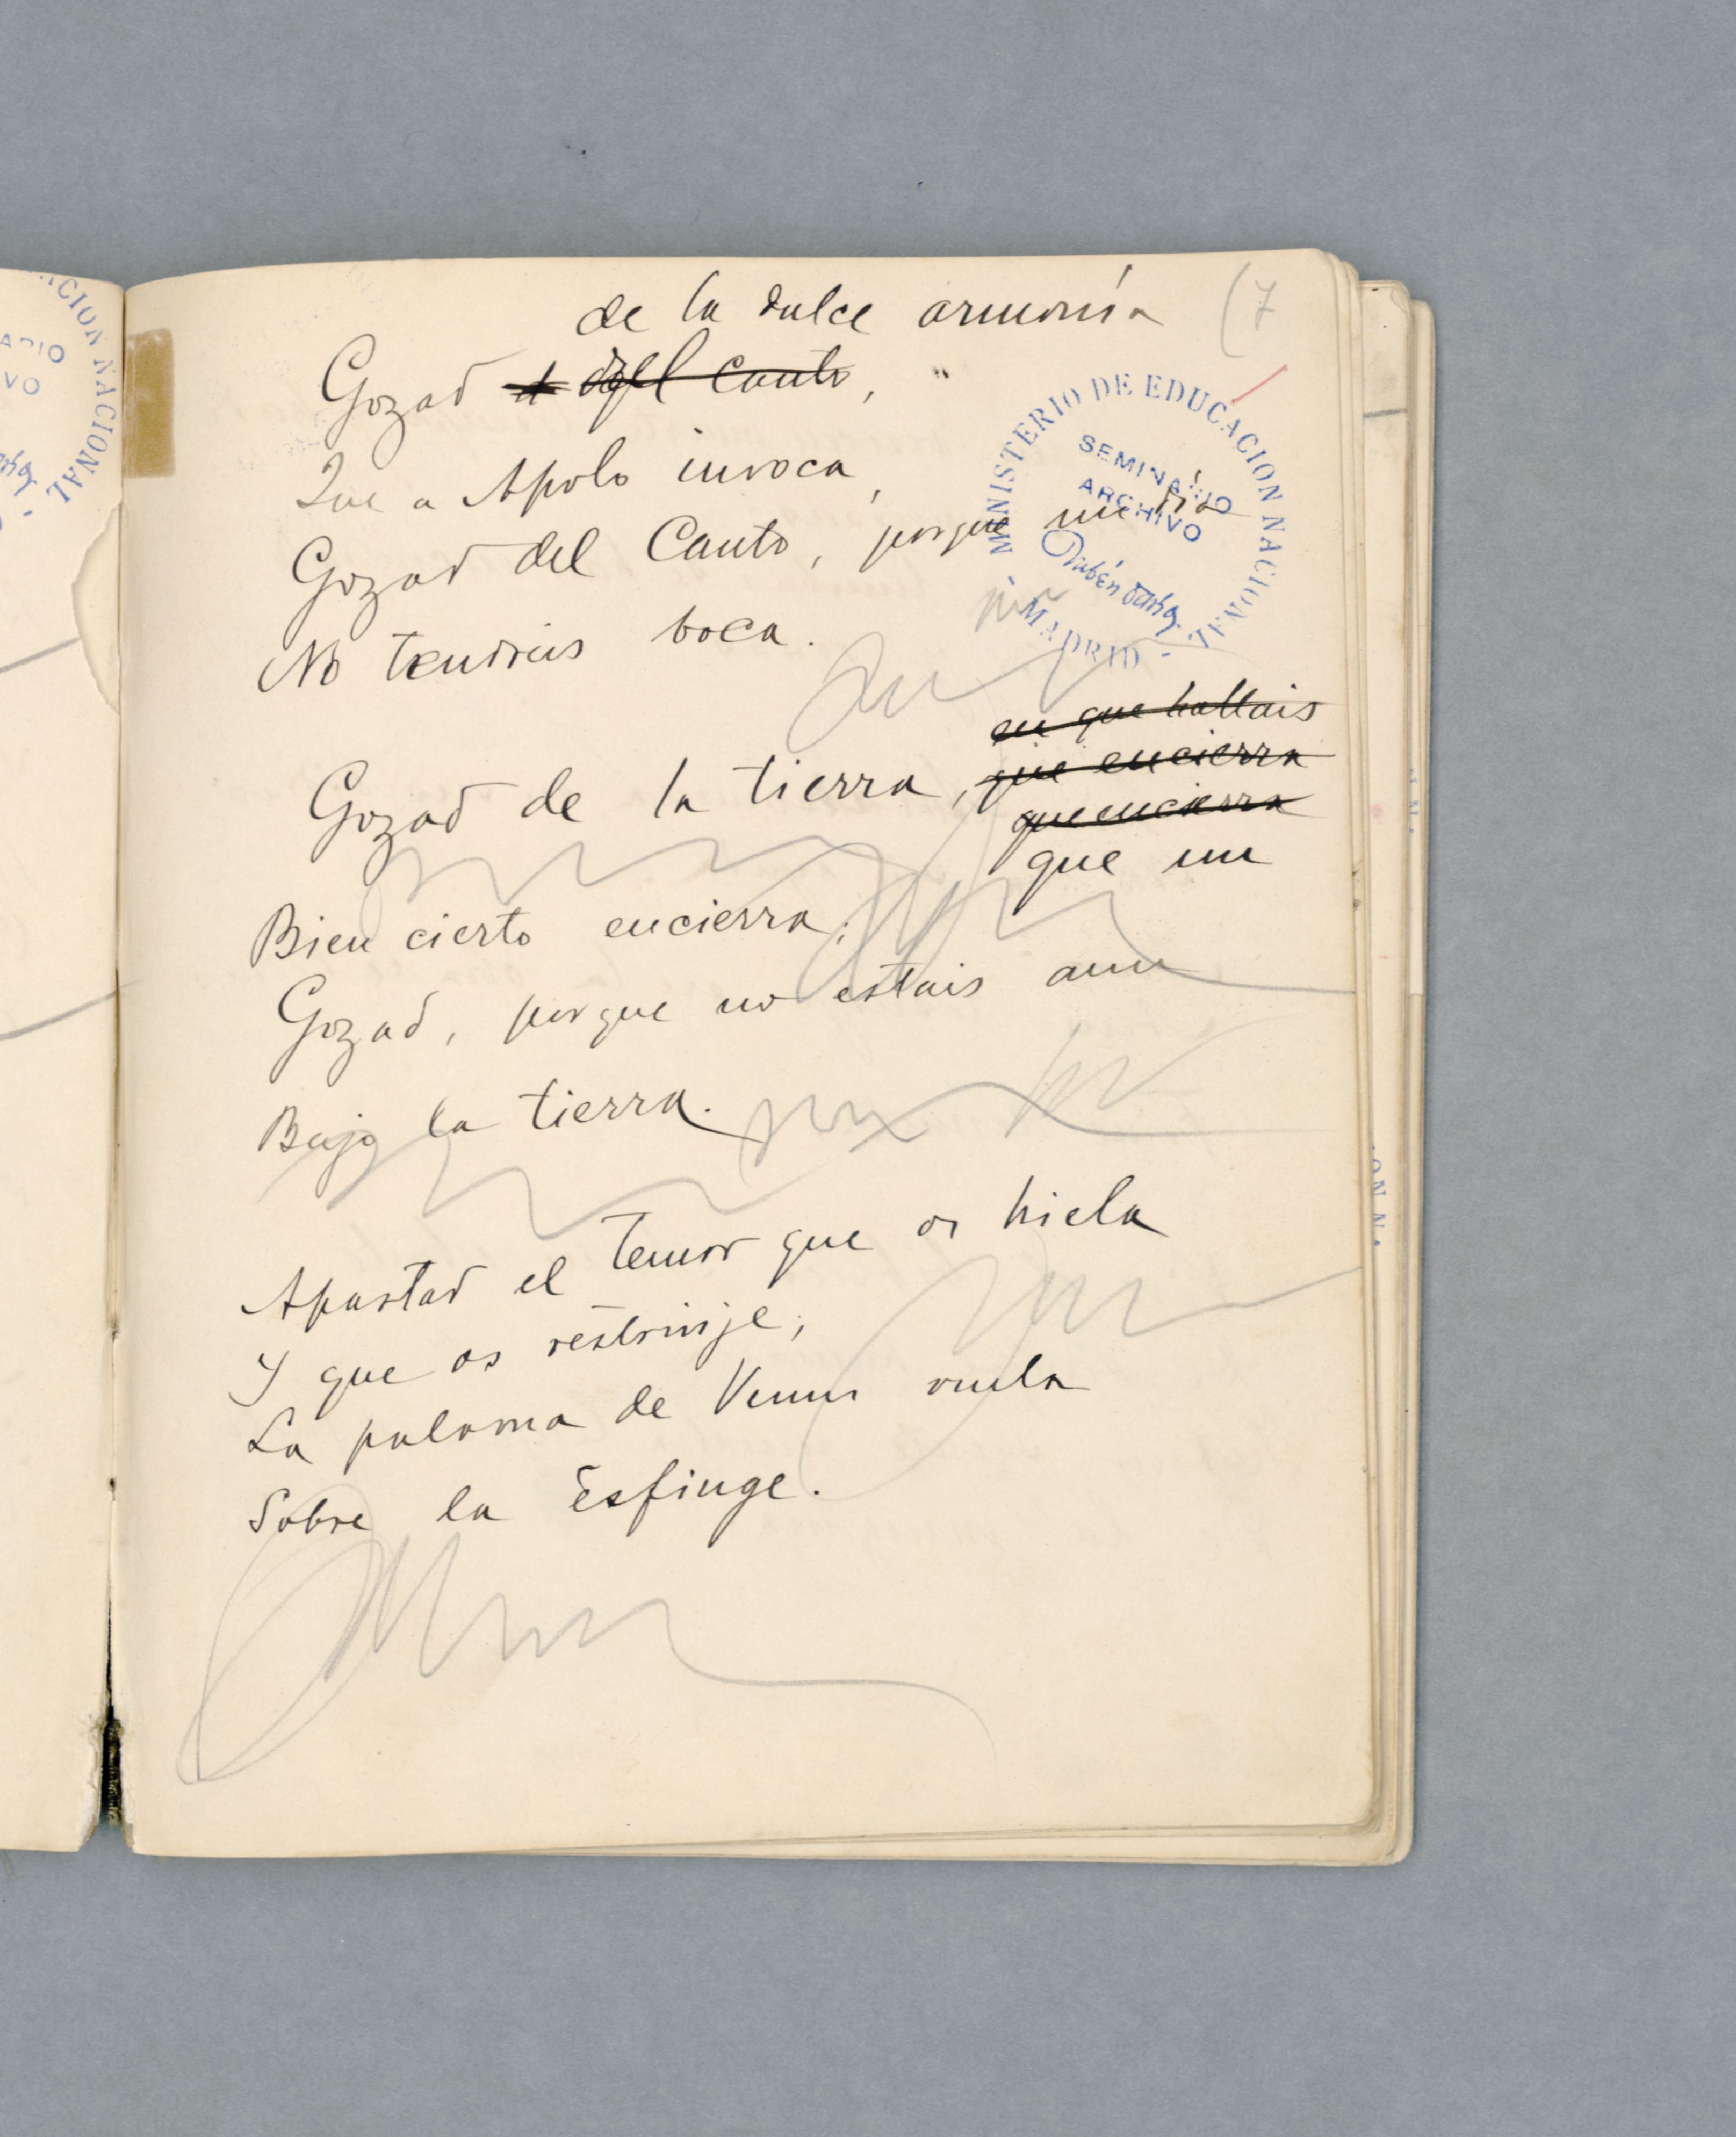 de la dulce armonía
(7
Gozad del Canto,
Que a Apolo invoca,
Gozad del Canto, porque un día
No tendreis boca.
en que hallais
que encierra
Gozad de la tierra,
que encierra
que un
Bien cierto encierra;
Gozad, porque no estais aun
Bajo la tierra.
Apartad el temor que os hiela
Y que os restrinje;
La paloma de Venus vuela
Sobre la Esfinge.
MINISTERIO DE EDUCACION NACIONAL
SEMINARIO
ARCHIVO
Rubén Darío
- MADRID -
CION NACIONAL